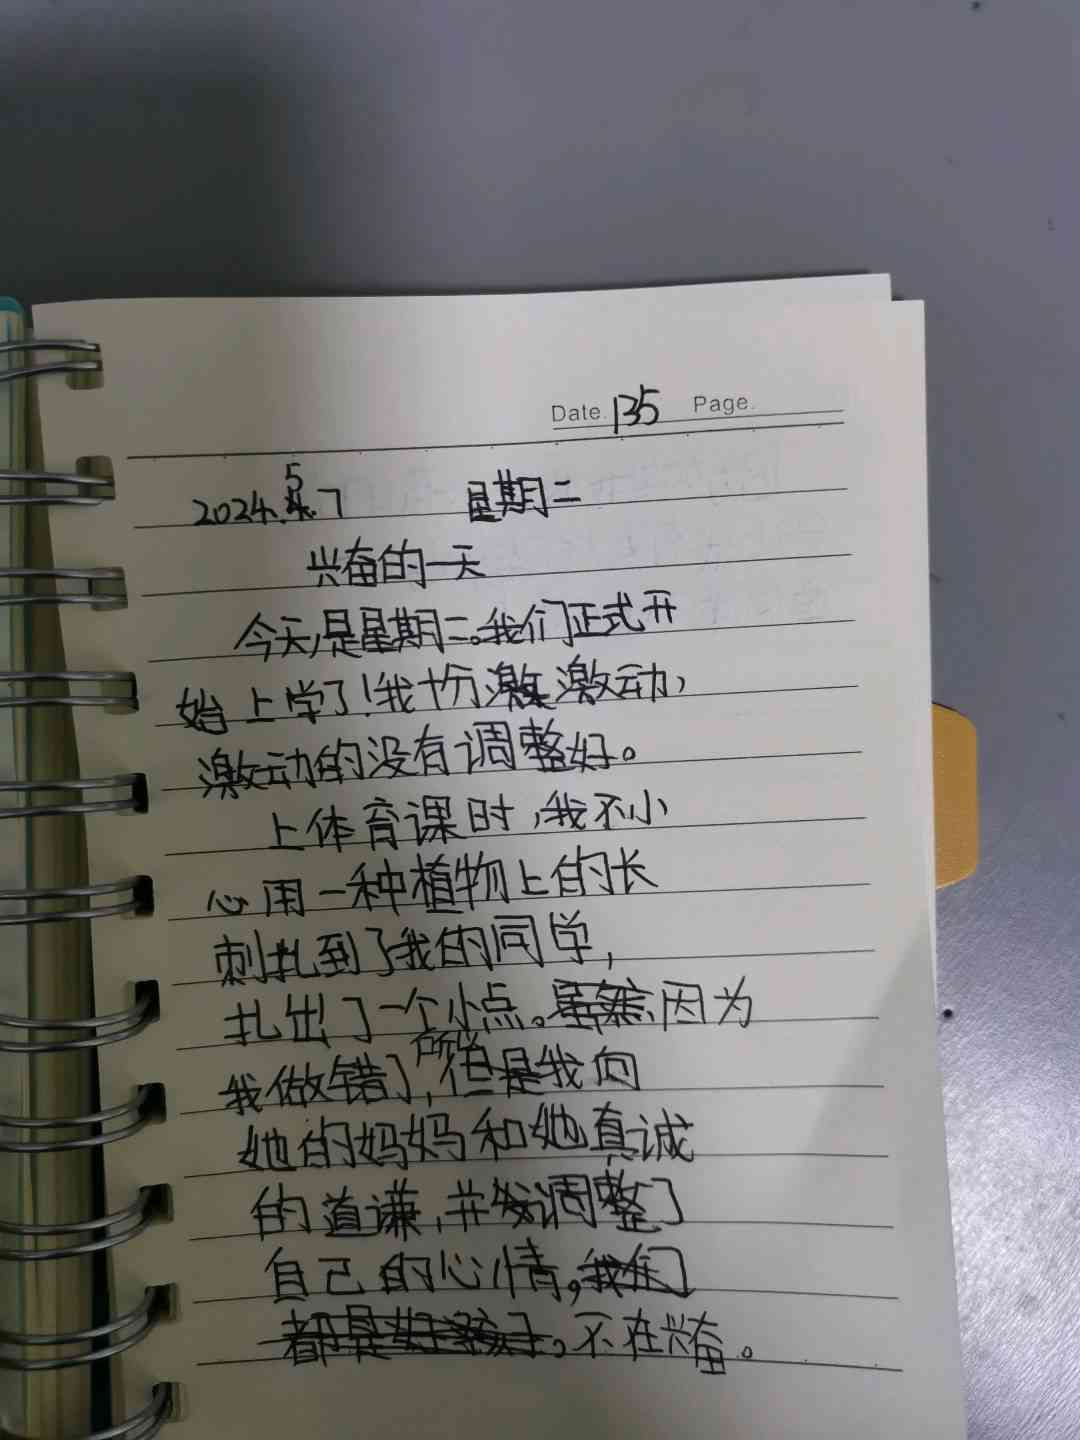 Date. 135 Page.
2024.5.7 星期二
兴奋的一天
今天,是星期二。我们正式开
始上学了!我十分激激动,
激动的没有调整好。
上体育课时,我不小
心用一种植物上的长
刺扎到了我的同学,
扎出了一个小点。虽然因为
我做错了,所以但是我向
她的妈妈和她真诚
的道谦,并发调整了
自己的心情。我们
都是好孩子。不在兴奋。